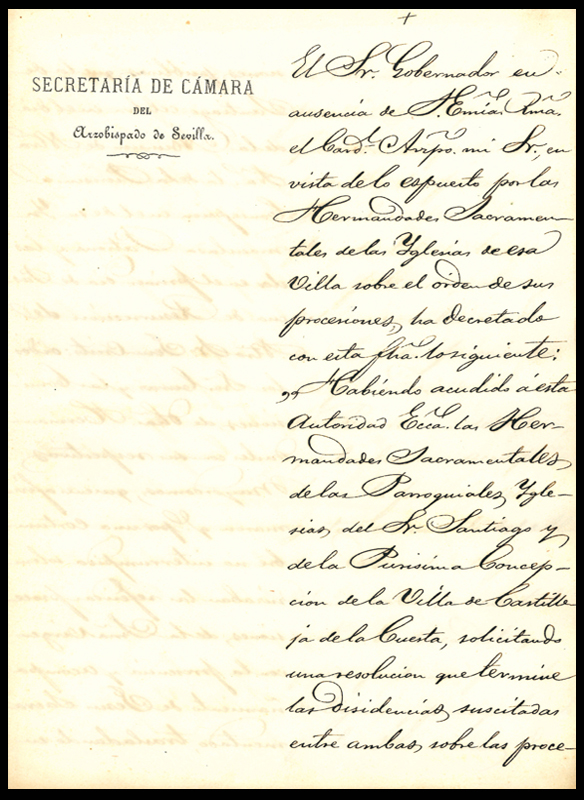 +
SECRETARÍA DE CÁMARA
DEL
Arzobispado de Sevilla.
El Sr. Gobernador en
ausencia de S. Emia. Rma.
el Card.l Arzpo. mi Sr., en
vista de lo espuesto por las
Hermandades Sacramen-
tales de las Yglesias de esa
Villa sobre el orden de sus
procesiones, ha decretado
con esta fha. lo siguiente:
„Habiendo acudido á esta
Autoridad Ecca. las Her-
mandades Sacramentales
de las Parroquiales Ygle-
sias del Sr. Santiago y
de la Purisima Concep-
cion de la Villa de Castille
ja de la Cuesta, solicitando
una resolucion que termine
las disidencias suscitadas
entre ambas sobre las proce-